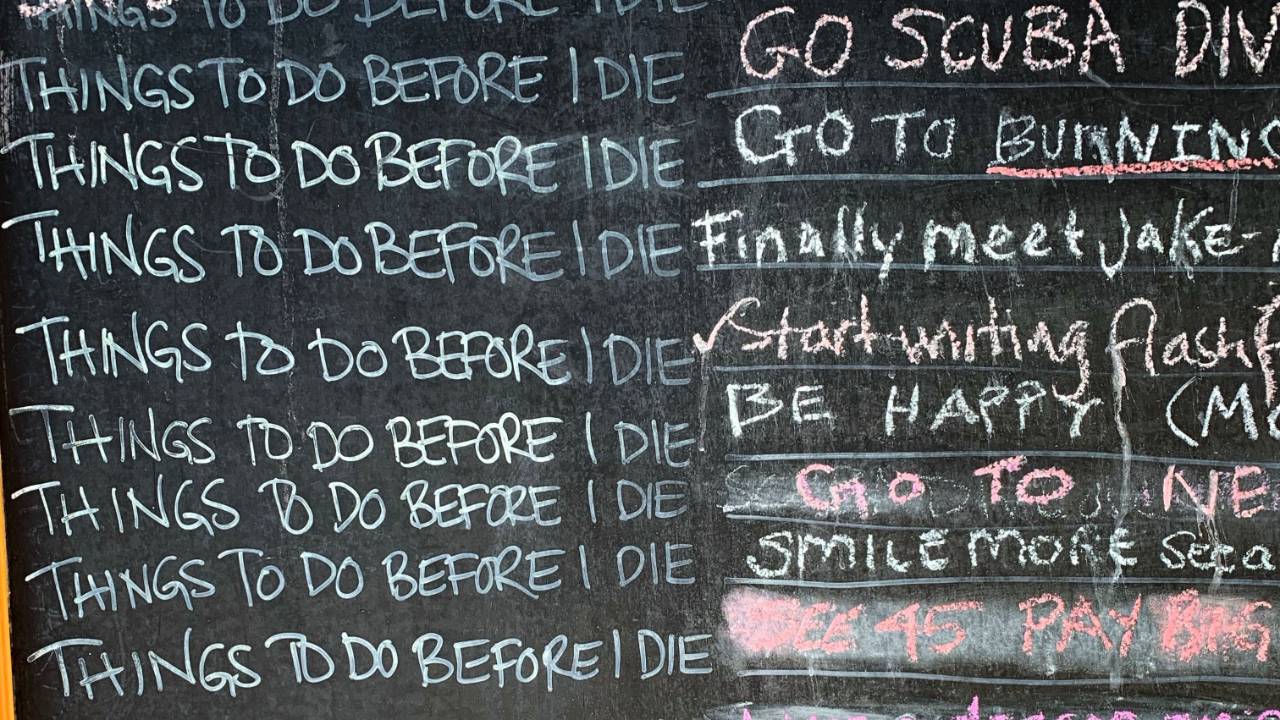 THINGS TO DO BEFORE I DIE GO SCUBA DIV
THINGS TO DO BEFORE I DIE GO TO BURNING
THINGS TO DO BEFORE I DIE Finally meet JAKE-
THINGS TO DO BEFORE I DIE ✓Start writing flash
THINGS TO DO BEFORE I DIE BE HAPPY (MO
THINGS TO DO BEFORE I DIE GO TO NE
THINGS TO DO BEFORE I DIE SMILE MORE
THINGS TO DO BEFORE I DIE SEE 45 PAY BIG
THINGS TO DO BEFORE I DIE